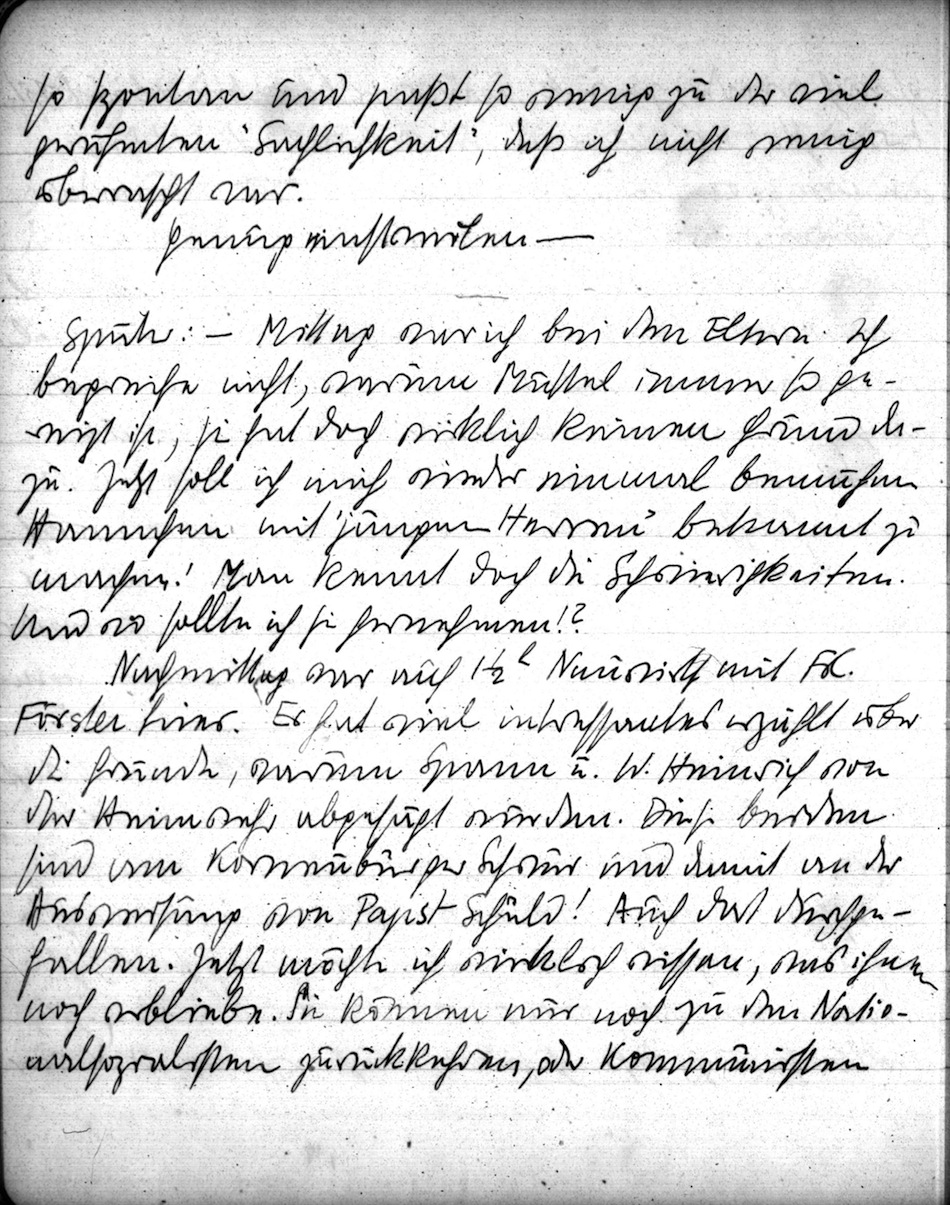 so spontan und paßt so wenig zu der viel
gerühmten "Sachlichkeit", daß ich nicht wenig
überrascht war.
Genug einstweilen —
Später: — Mittag war ich bei den Eltern. Ich
begreife nicht, warum Mästel immer so ge-
reizt ist, sie hat doch wirklich keinen Grund da-
zu. Jetzt soll ich mich wieder einmal bemühen
Hannchen mit "jungen Herren" bekannt zu
machen! Man kennt doch die Schwierigkeiten.
Und wo sollte ich sie hernehmen!?
Nachmittag war auch 1½ h Neuwirth mit Frl.
Förster hier. Er hat viel interessantes erzählt über
die Gründe, warum Spann u. W. Heinrich von
der Heimwehr abgesägt wurden. Diese beiden
sind am Korneuburger Schwur und damit an der
Ausweisung von Papst Schuld! Auch dort durchge-
fallen. Jetzt möchte ich wirklich wissen, was ihnen
noch erbliebe. Sie können nur noch zu den Natio-
nalsozialisten zurückkehren, oder Kommunisten